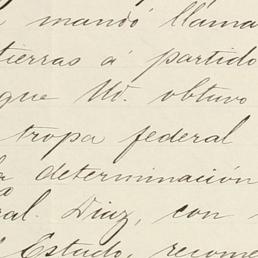 mandó llama
tierras á partido
que Ud. obtuvo
tropa federal
determinación
ral. Diaz, con
Estado, recome